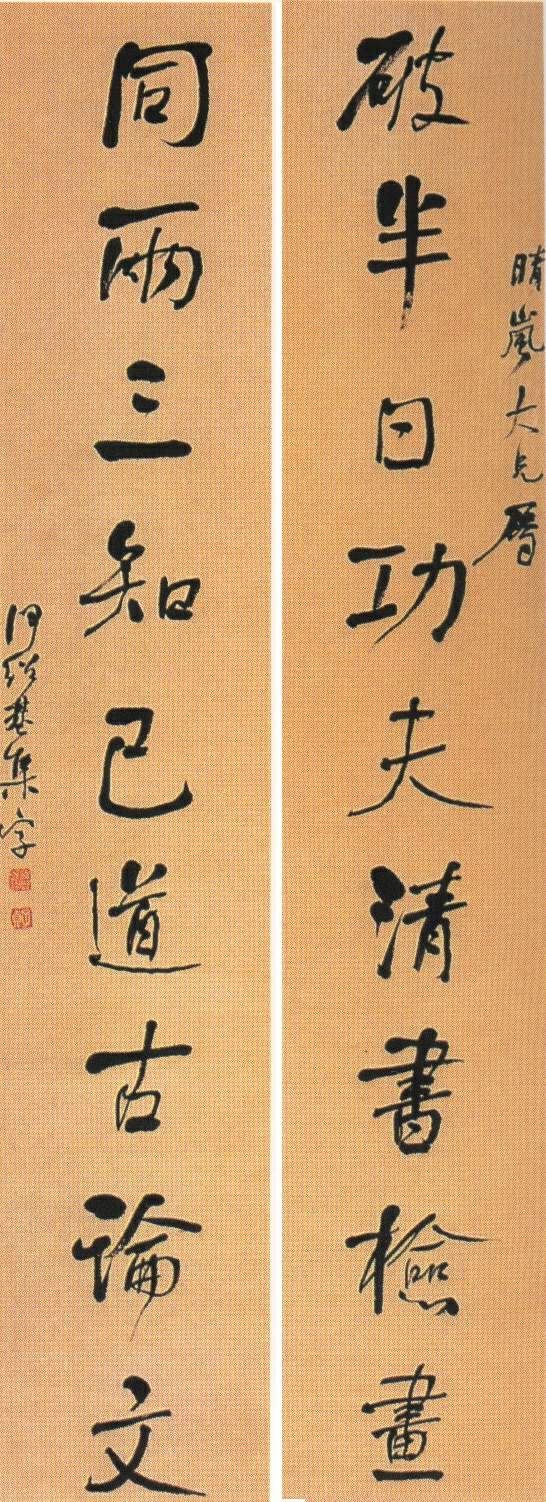 晴嵐大兄屬
破半日功夫清書檢畫
同兩三知己道古論文
伊念曾集字